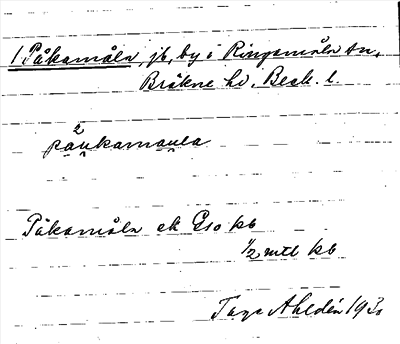 1 Påkamåla, jb, by i Ringamåla sn,
Bräkne hd, Blek. l.
2
pau̯kamau̯la
Påkamåla ek Gso kb
1/2 mtl kb
Tage Ahldén 193